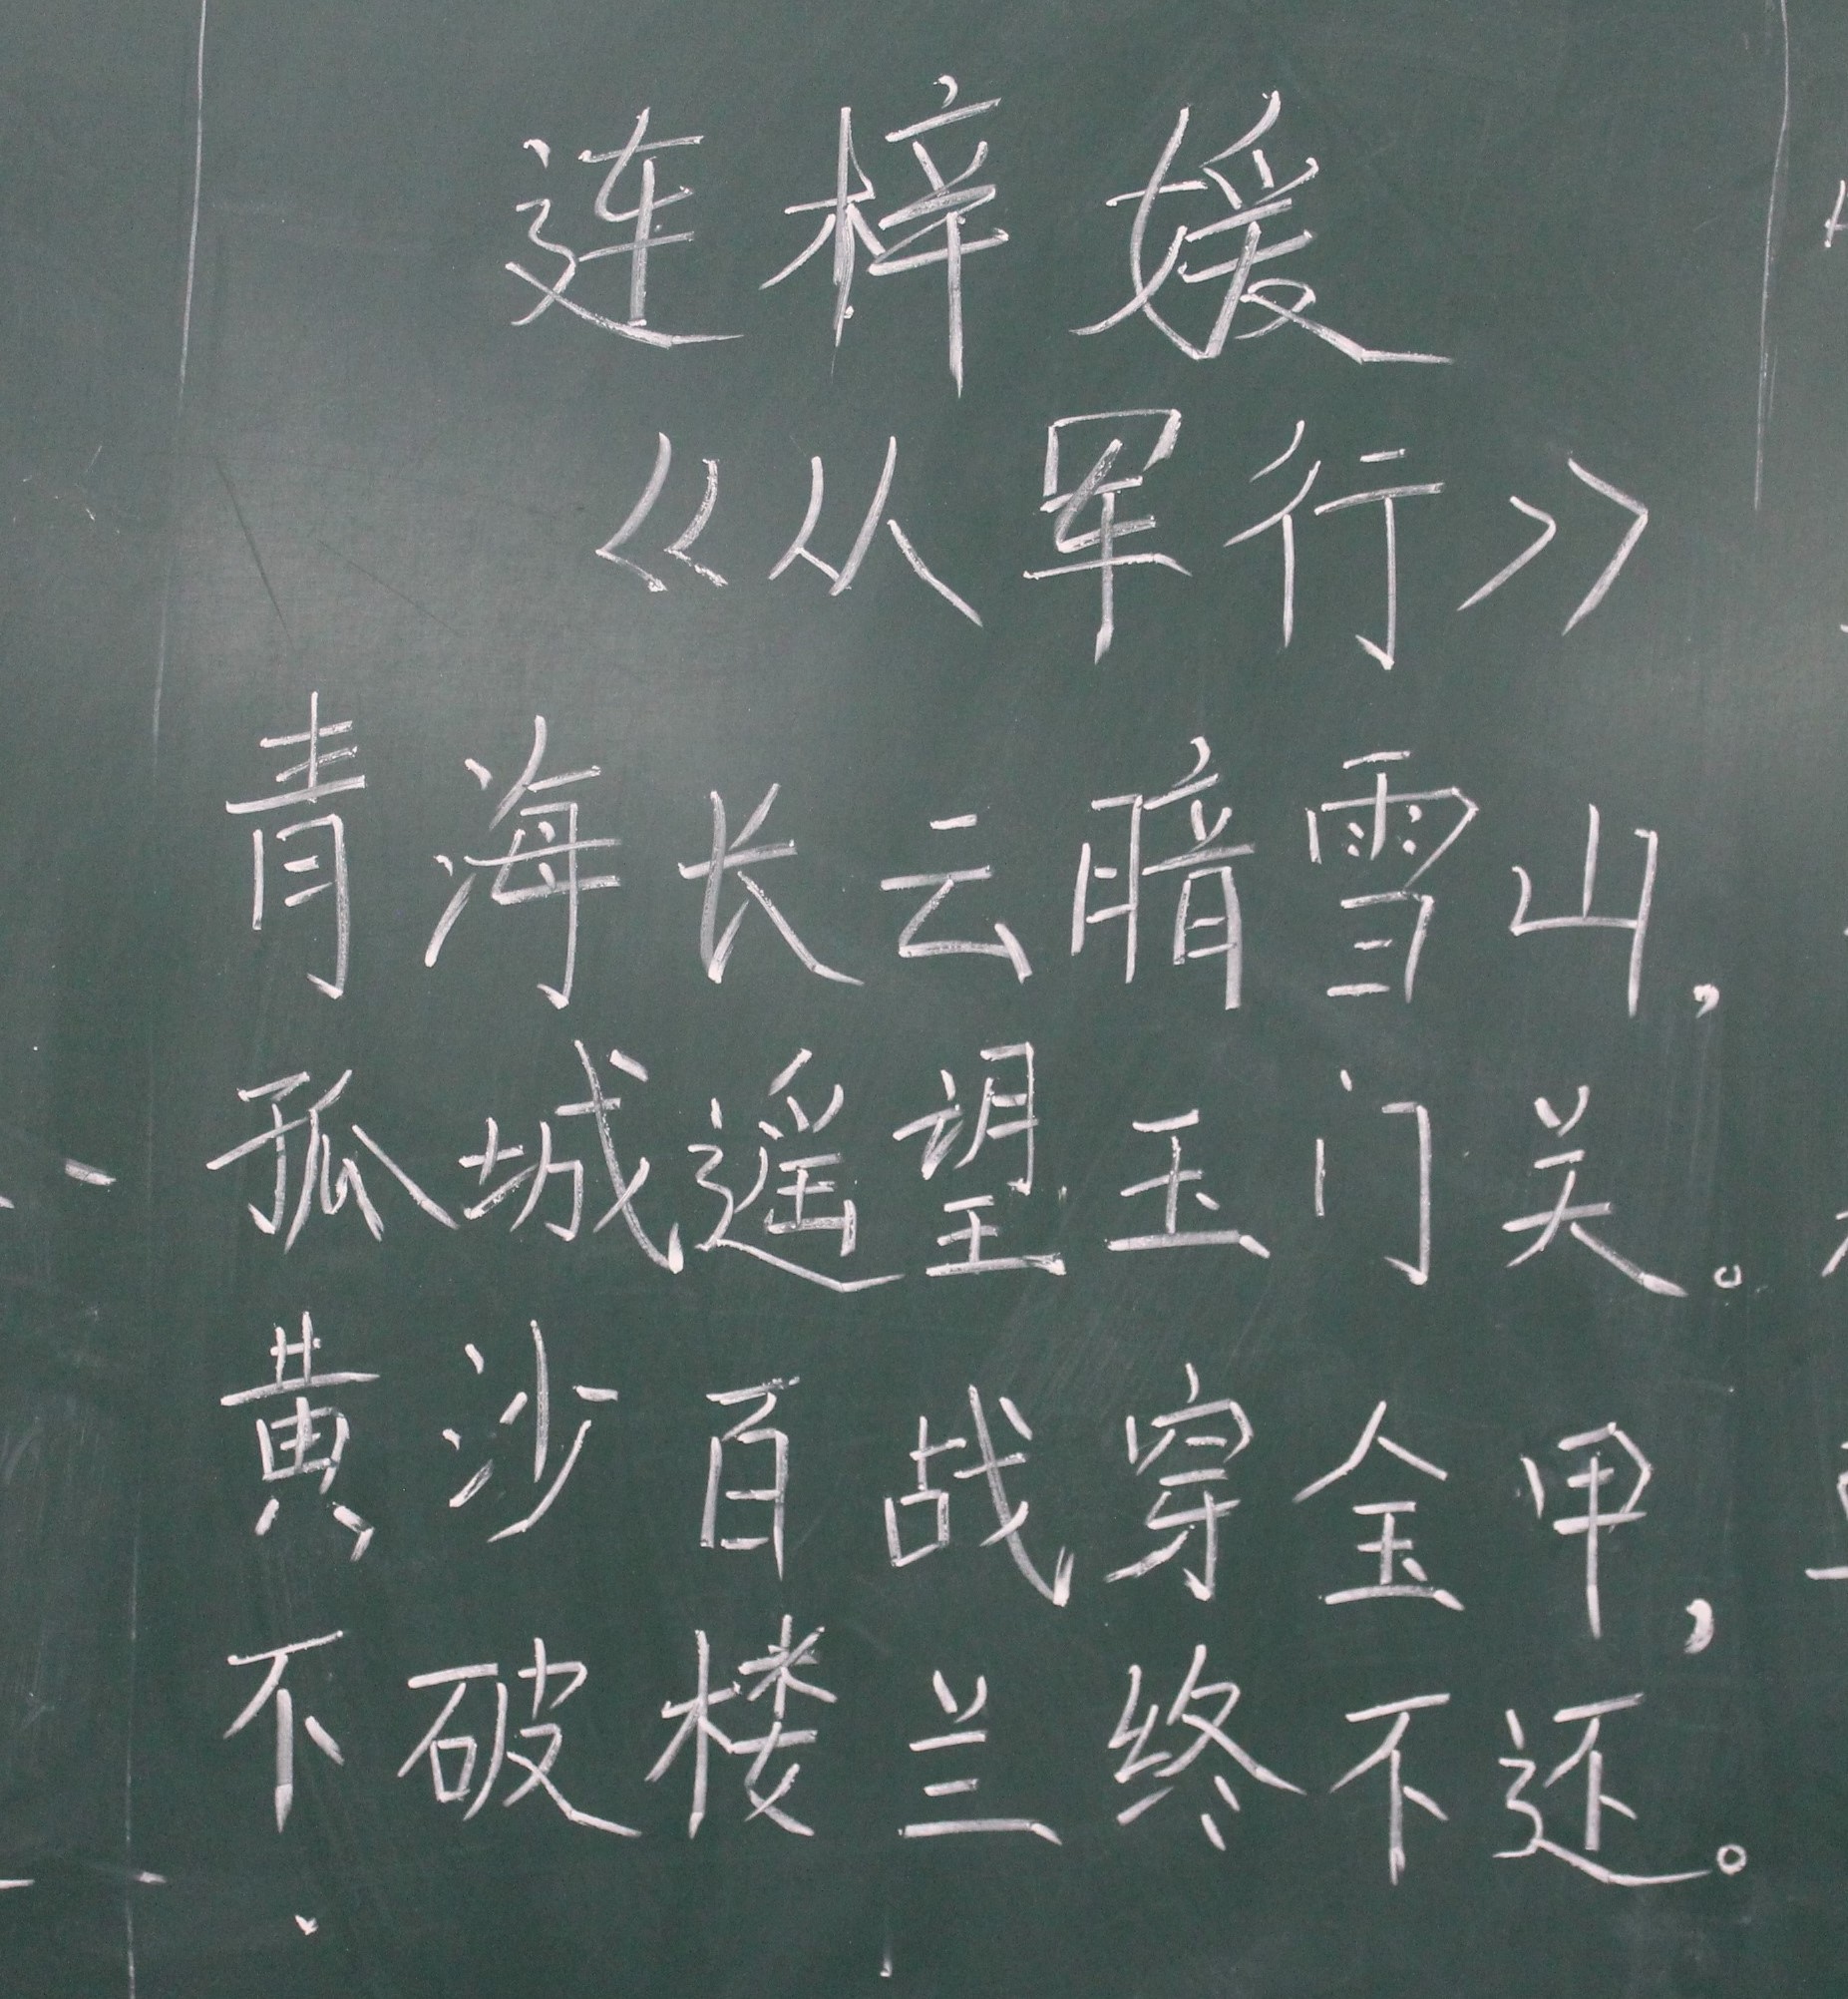 连梓媛
《从军行》
青海长云暗雪山，
孤城遥望玉门关。
黄沙百战穿金甲，
不破楼兰终不还。